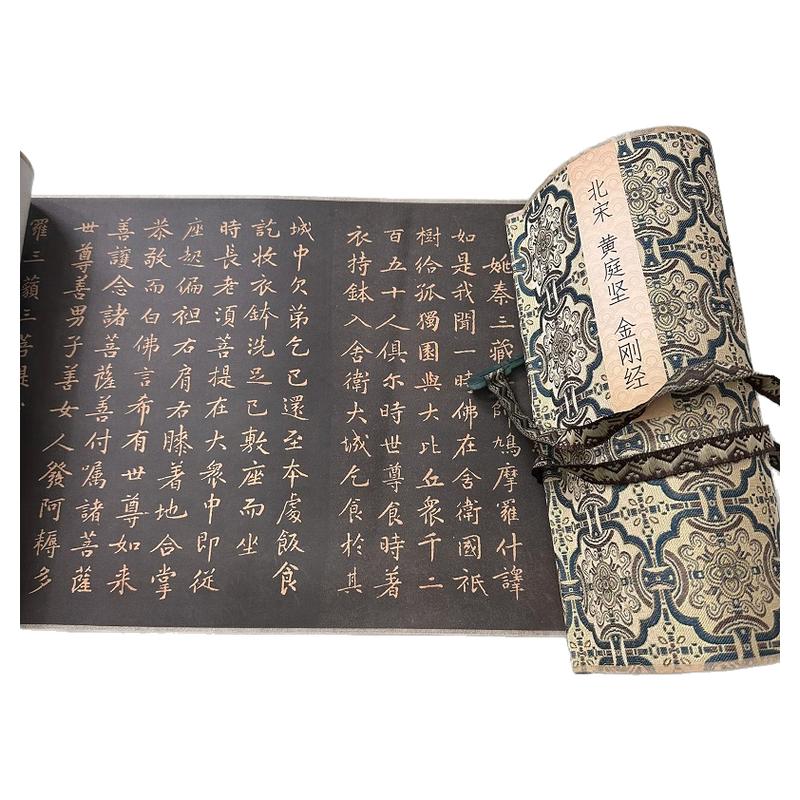 北宋 黄庭坚 金刚经
姚秦三藏師鳩摩羅什譯
如是我聞一時佛在舍衛國祇
樹給孤獨園與大比丘衆千二
百五十人俱尓時世尊食時著
衣持鉢入舍衛大城乞食於其
城中次弟乞已還至本處飯食
訖收衣鉢洗足已敷座而坐
時長老須菩提在大衆中即從
座起偏袒右肩右膝著地合掌
恭敬而白佛言希有世尊如来
善護念諸菩薩善付嘱諸菩薩
世尊善男子善女人發阿耨多
羅三藐三菩提